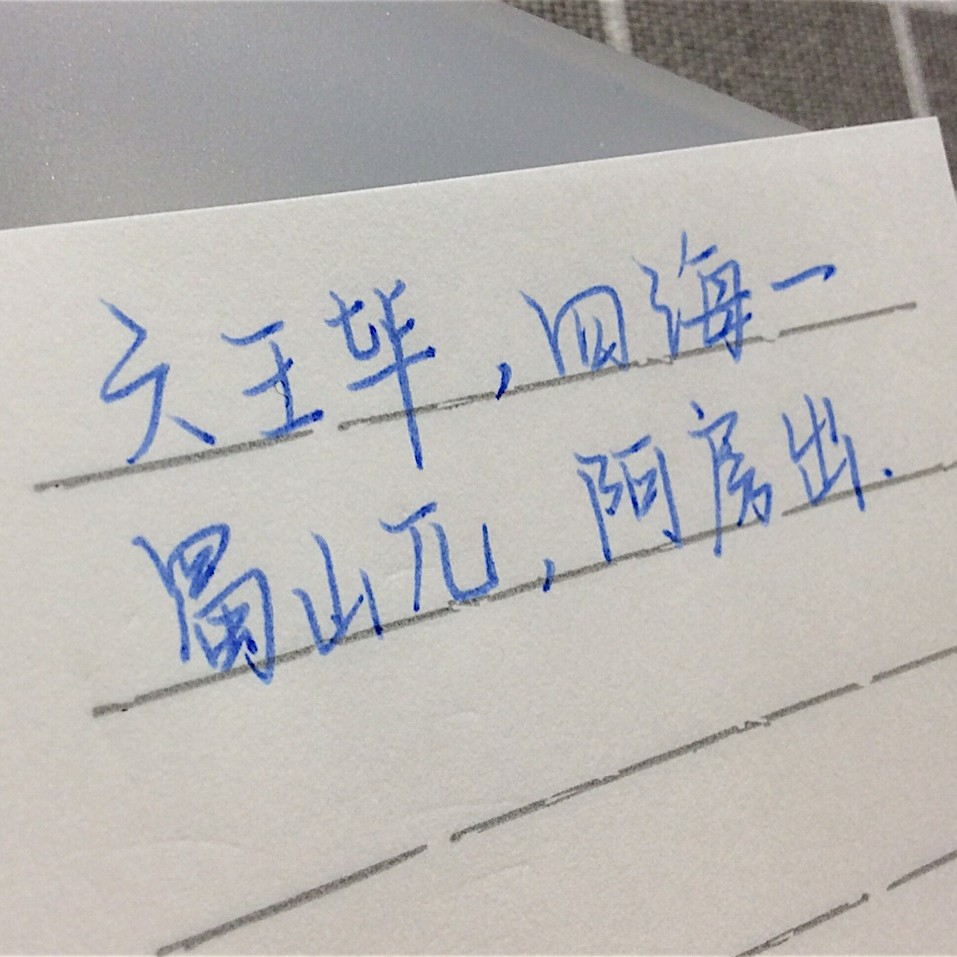 六王毕，四海一
蜀山兀，阿房出.